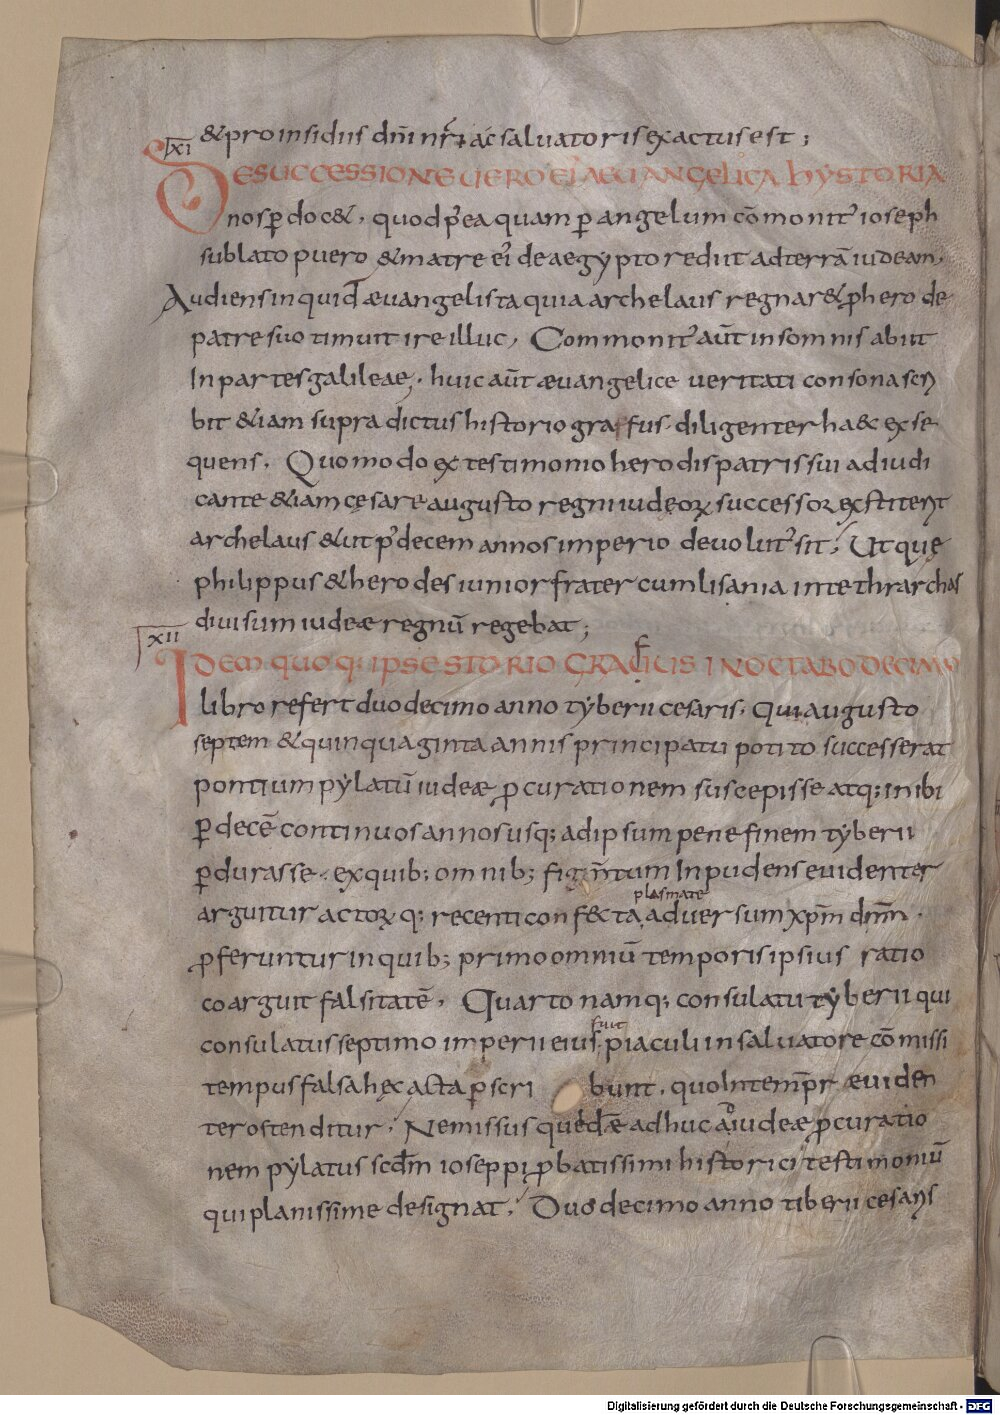 &pro insidiis dñi nr̃i ac saluatoris exactus est;
XI
DE SUCCESSIONE UERO EI' AEUANGELICA HYSTORIA
nos p̱ doc&, quod p't ea quam p̱ angelum cōmonit' ioseph
sublato puero &matre ei' de aegypto rediit ad terrā iudeam,
Audiens inquid æuangelista quia archelaus regnar& p̱ herode
patre suo timuit ire illuc, Commonit' aūt in somnis abiit
In partes galileae, huic aūt æuangelice ueritati consona scri
bit &iam supra dictus historiograffus diligenter ha&c exse
quens, Quomodo ex testimonio herodis patris sui adiudi
cante &iam cesare augusto regni iudeoꝝ successor exstiterit
archelaus &ut p' decem annos imperio deuolut' sit, Ut que
philippus &herodes iunior frater cum lisania in tethrarchas
diuisum iudeæ regnū regebat;
XII
IDEM QUOQ; IPSE STORIOGRAFIUS IN OCTABO DECIMO
f
libro refert duodecimo anno tyberii cesaris, qui augusto
septem &quinquaginta annis principatu potito successerat
pontium pylatū iudeæ ꝓcurationem suscepisse atq; in ibi
p̱ decē continuos annos usq; ad ipsum pene finem tyberii
p̱durasse, ex quib; omnib; figm̄tum Inpudens euidenter
plasmate
arguitur actoꝝ q; recenti confecta aduersum xp̄m dñm,
ꝓferuntur in quib; primo omniū temporis ipsius ratio
coarguit falsitatē, Quarto namq; consulatu tyberii qui
fuit
consulatus septimo imperii eius piaculi in saluatore cōmissi
tempus falsa hęc acta p̱scribunt, quo Intemp̄r æuiden
ter ostenditur, Nemissus quedē adhuc aō iudeæ ꝓcuratio
nem pylatus scd̄m ioseppi ꝓbatissimi historici testimoniū
qui planissime designat, Duodecimo anno tiberii cesaris
Digitalisierung gefördert durch die Deutsche Forschungsgemeinschaft - DFG